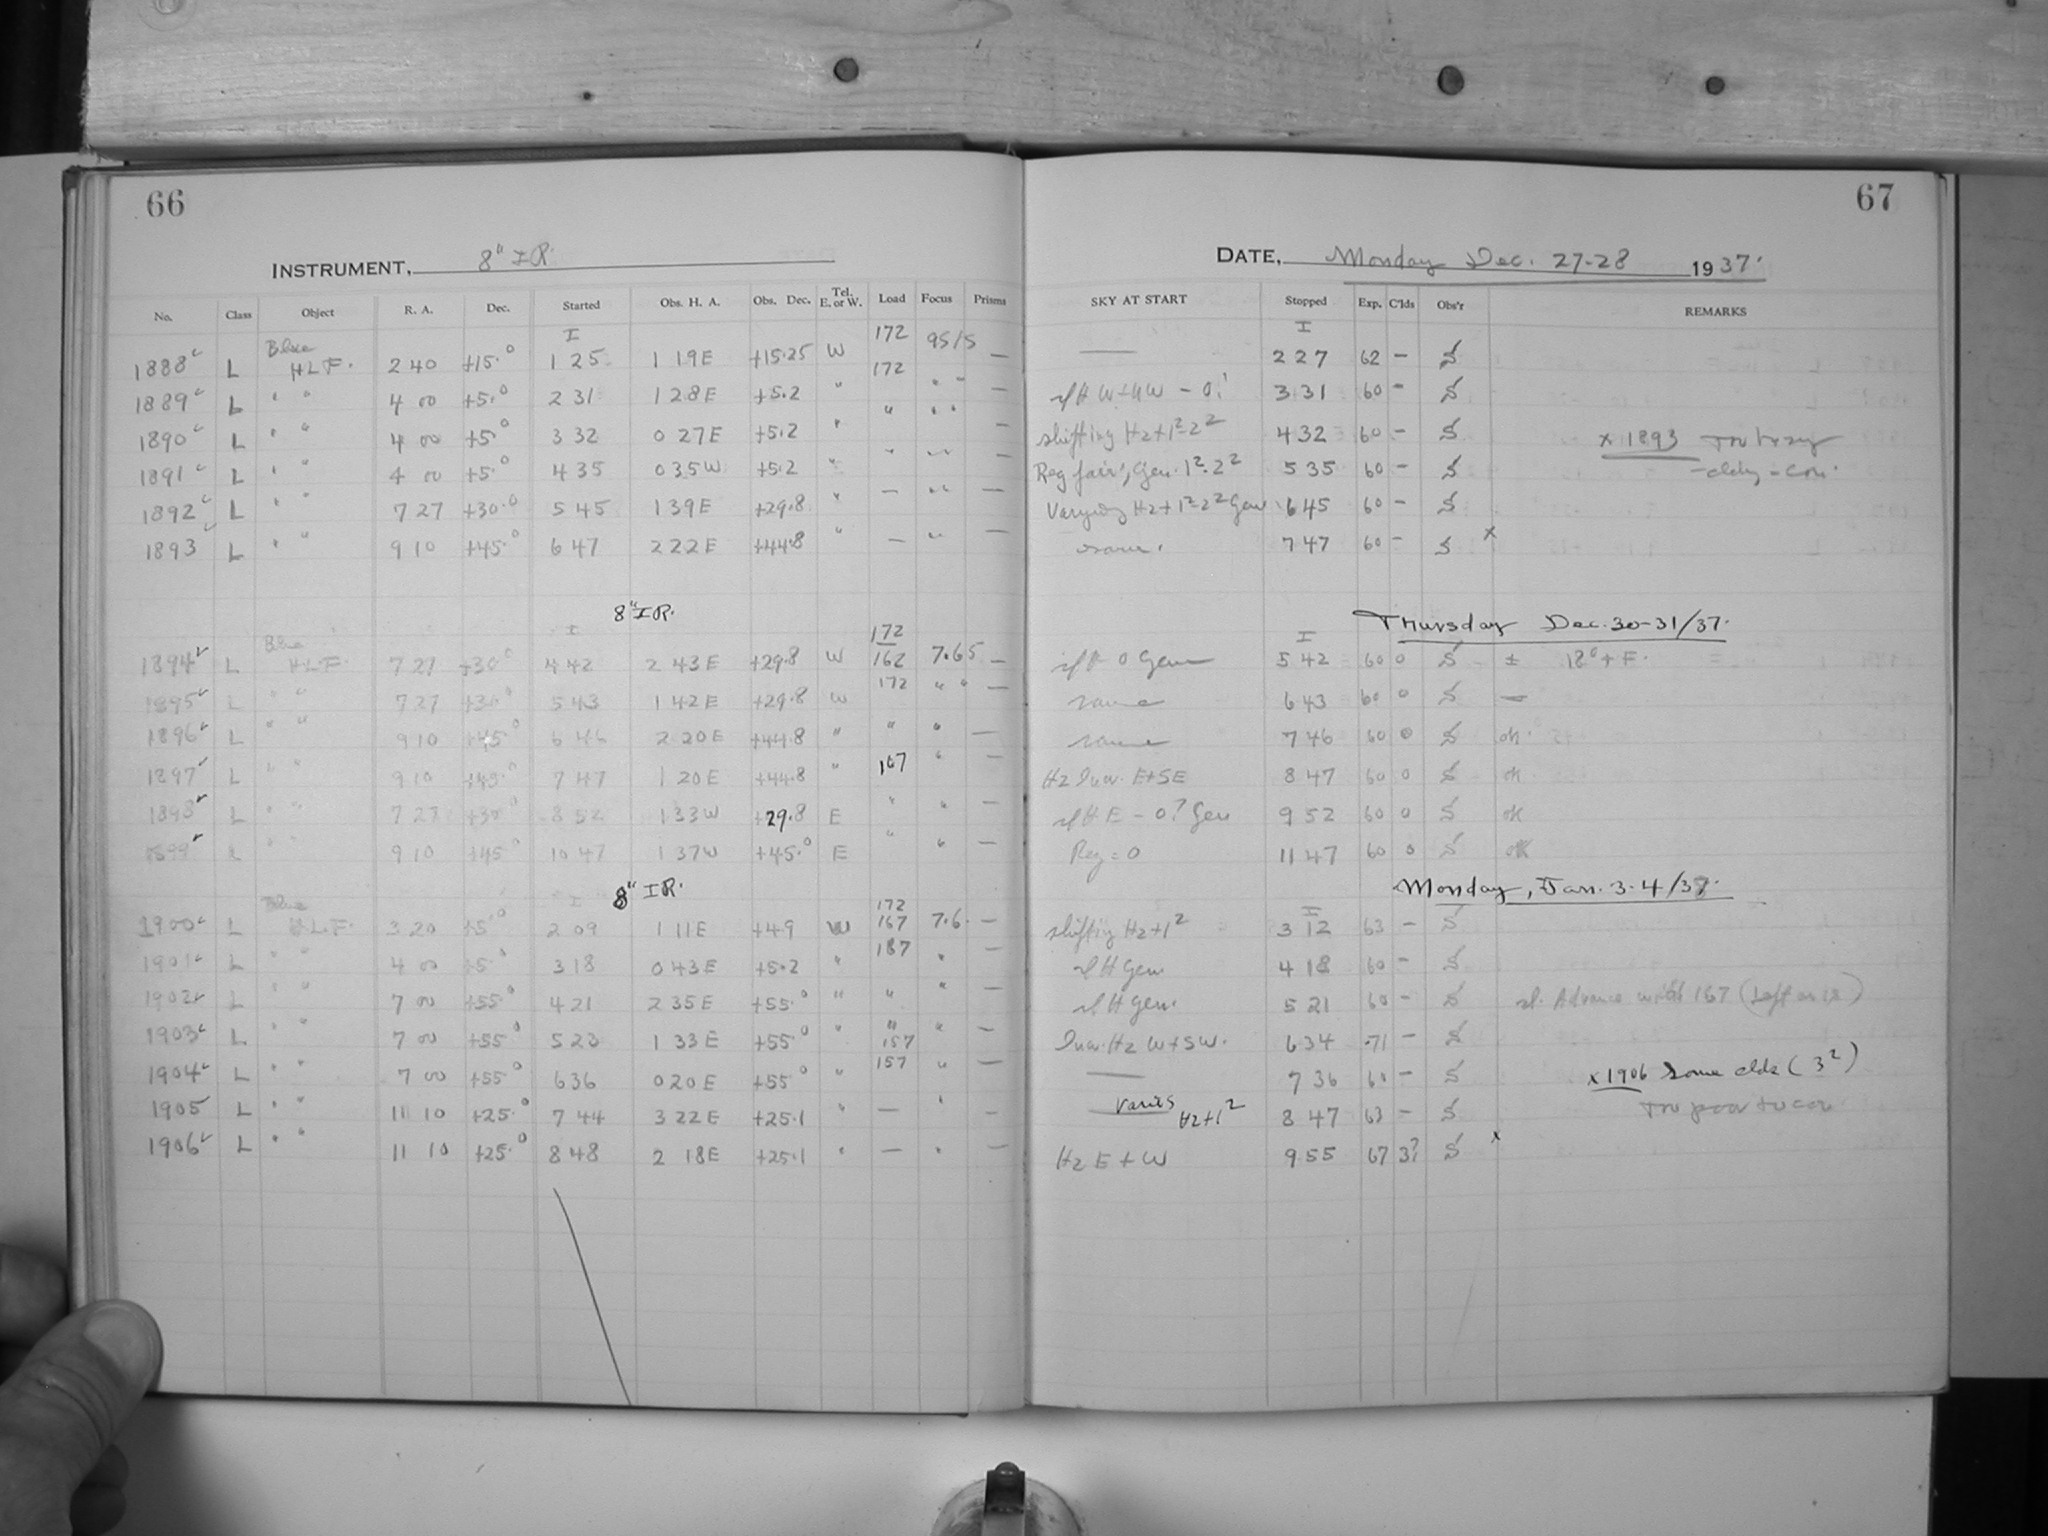 66
67
INSTRUMENT, 8" IR.
DATE, Monday Dec. 27-28 1937.
No. Class Object R. A. Dec. Started Obs. H. A. Obs. Dec. Tel. E. or W. Load Focus Prisms SKY AT START Stopped Exp. C'lds Obs'r REMARKS
I 172 I
1888 L Blue H.L.F. 2 40 +15.0 1 25 1 19E +15.25 W 172 95/5 — — 2 27 62 – S
1889 L " " 4 00 +5.0 2 31 1 28E +5.2 " " " — 3 31 60 – S
1890 L " " 4 00 +5.0 3 32 0 27E +5.2 " " " — shifting Hz+1²-2² 4 32 60 – S x 1893
1891 L " " 4 00 +5.0 4 35 0 35W +5.2 " " " — Reg fair, Gen. 1²-2² 5 35 60 – S
1892 L " " 7 27 +30.0 5 45 1 39E +29.8 " — " — Varying Hz+1²-2² Gen 6 45 60 – S
1893 L " " 9 10 +45.0 6 47 2 22E +44.8 " — " — same. 7 47 60 – S x
8" IR. Thursday Dec. 30-31/37.
I 172 I
1894 L Blue H.L.F. 7 27 +30.0 4 42 2 43E +29.8 W 162 7.65 — 0 Gen 5 42 60 0 S ± 18° + F.
1895 L " " 7 27 +30.0 5 43 1 42E +29.8 W 172 " " — same 6 43 60 0 S —
1896 L " " 9 10 +45.0 6 46 2 20E +44.8 " " " — same 7 46 60 0 S ok.
1897 L " " 9 10 +45.0 7 47 1 20E +44.8 " 167 " — Hz Incr. E+SE 8 47 60 0 S ok
1898 L " " 7 27 +30.0 8 52 1 33W +29.8 E " " — sl H E - 0? Gen 9 52 60 0 S ok
1899 L " " 9 10 +45.0 10 47 1 37W +45.0 E " " — Reg = 0 11 47 60 0 S ok
8" IR. Monday, Jan. 3-4/38.
I 172 I
1900 L Blue H.L.F. 3 20 +5.0 2 09 1 11E +4.9 W 167 7.6 — shifting Hz+1² 3 12 63 – S
1901 L " " 4 00 +5.0 3 18 0 43E +5.2 " 187 " — sl H Gen 4 18 60 – S
1902 L " " 7 00 +55.0 4 21 2 35E +55.0 " " " — sl H gen. 5 21 60 – S sl. Advance with 167
1903 L " " 7 00 +55.0 5 23 1 33E +55.0 " " 157 " — Incr. Hz W+SW. 6 34 71 – S
1904 L " " 7 00 +55.0 6 36 0 20E +55.0 " 157 " — — 7 36 60 – S x 1906 some clds (3²)
1905 L " " 11 10 +25.0 7 44 3 22E +25.1 " — " — varies Hz+1² 8 47 63 – S too poor to con
1906 L " " 11 10 +25.0 8 48 2 18E +25.1 " — " — Hz E+W 9 55 67 3? S x